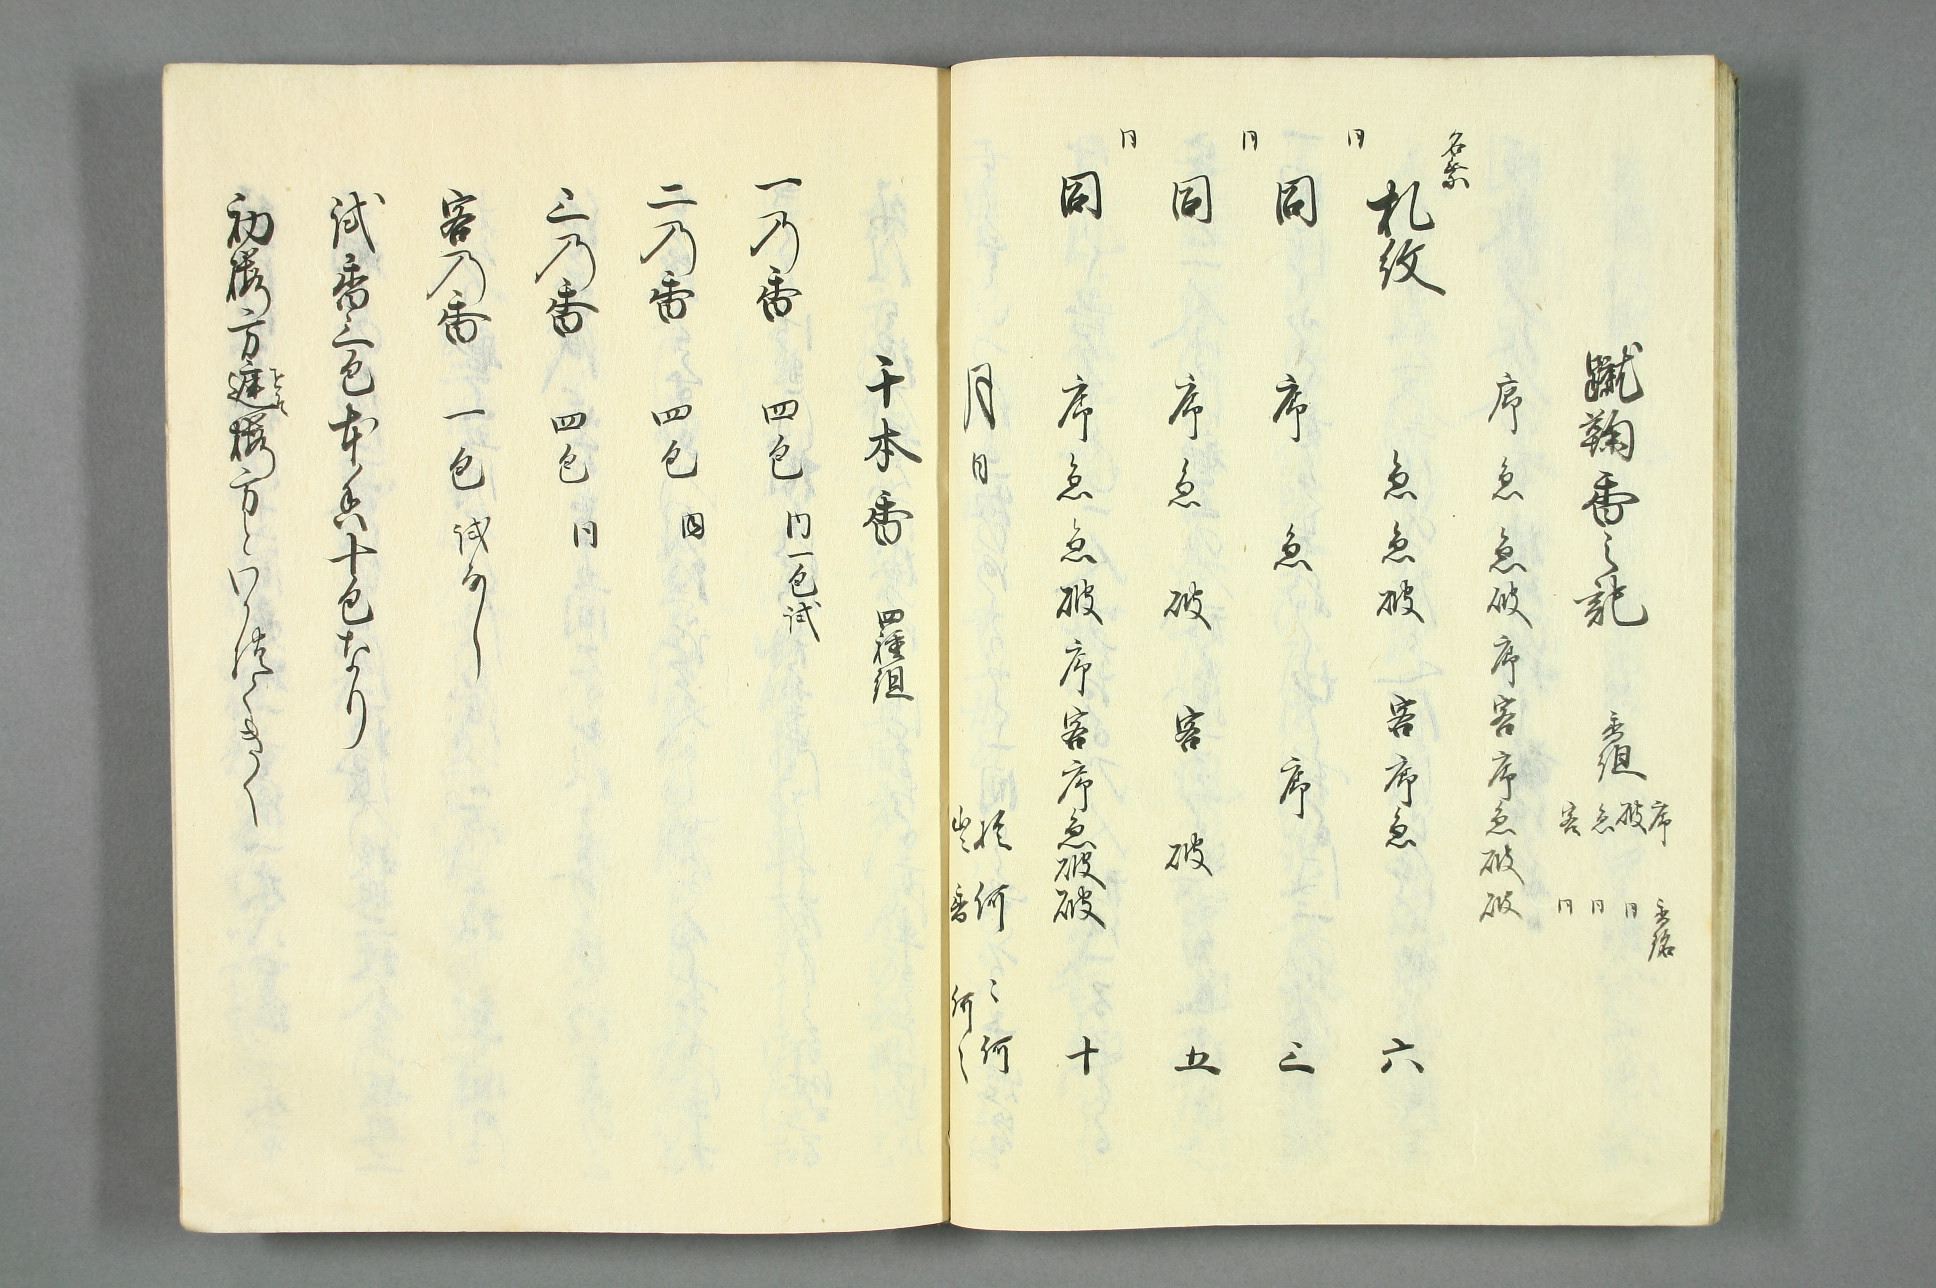 蹴鞠香之記
香組
序 香銘
破 同
急 同
客 同
序急急破序客序急破破
名乗
札紋 急急破客序急 六
同
同 序急序 三
同
同 序急破客破 五
同
同 序急急破序客序急破破 十
月日
於何ミ何
出香 何之
千本香 四種組
一乃香 四包 内一包試
二乃香 四包 同
三乃香 四包 同
客乃香 一包 試なし
試香三包本香十包なり
初桜方遅桜方と